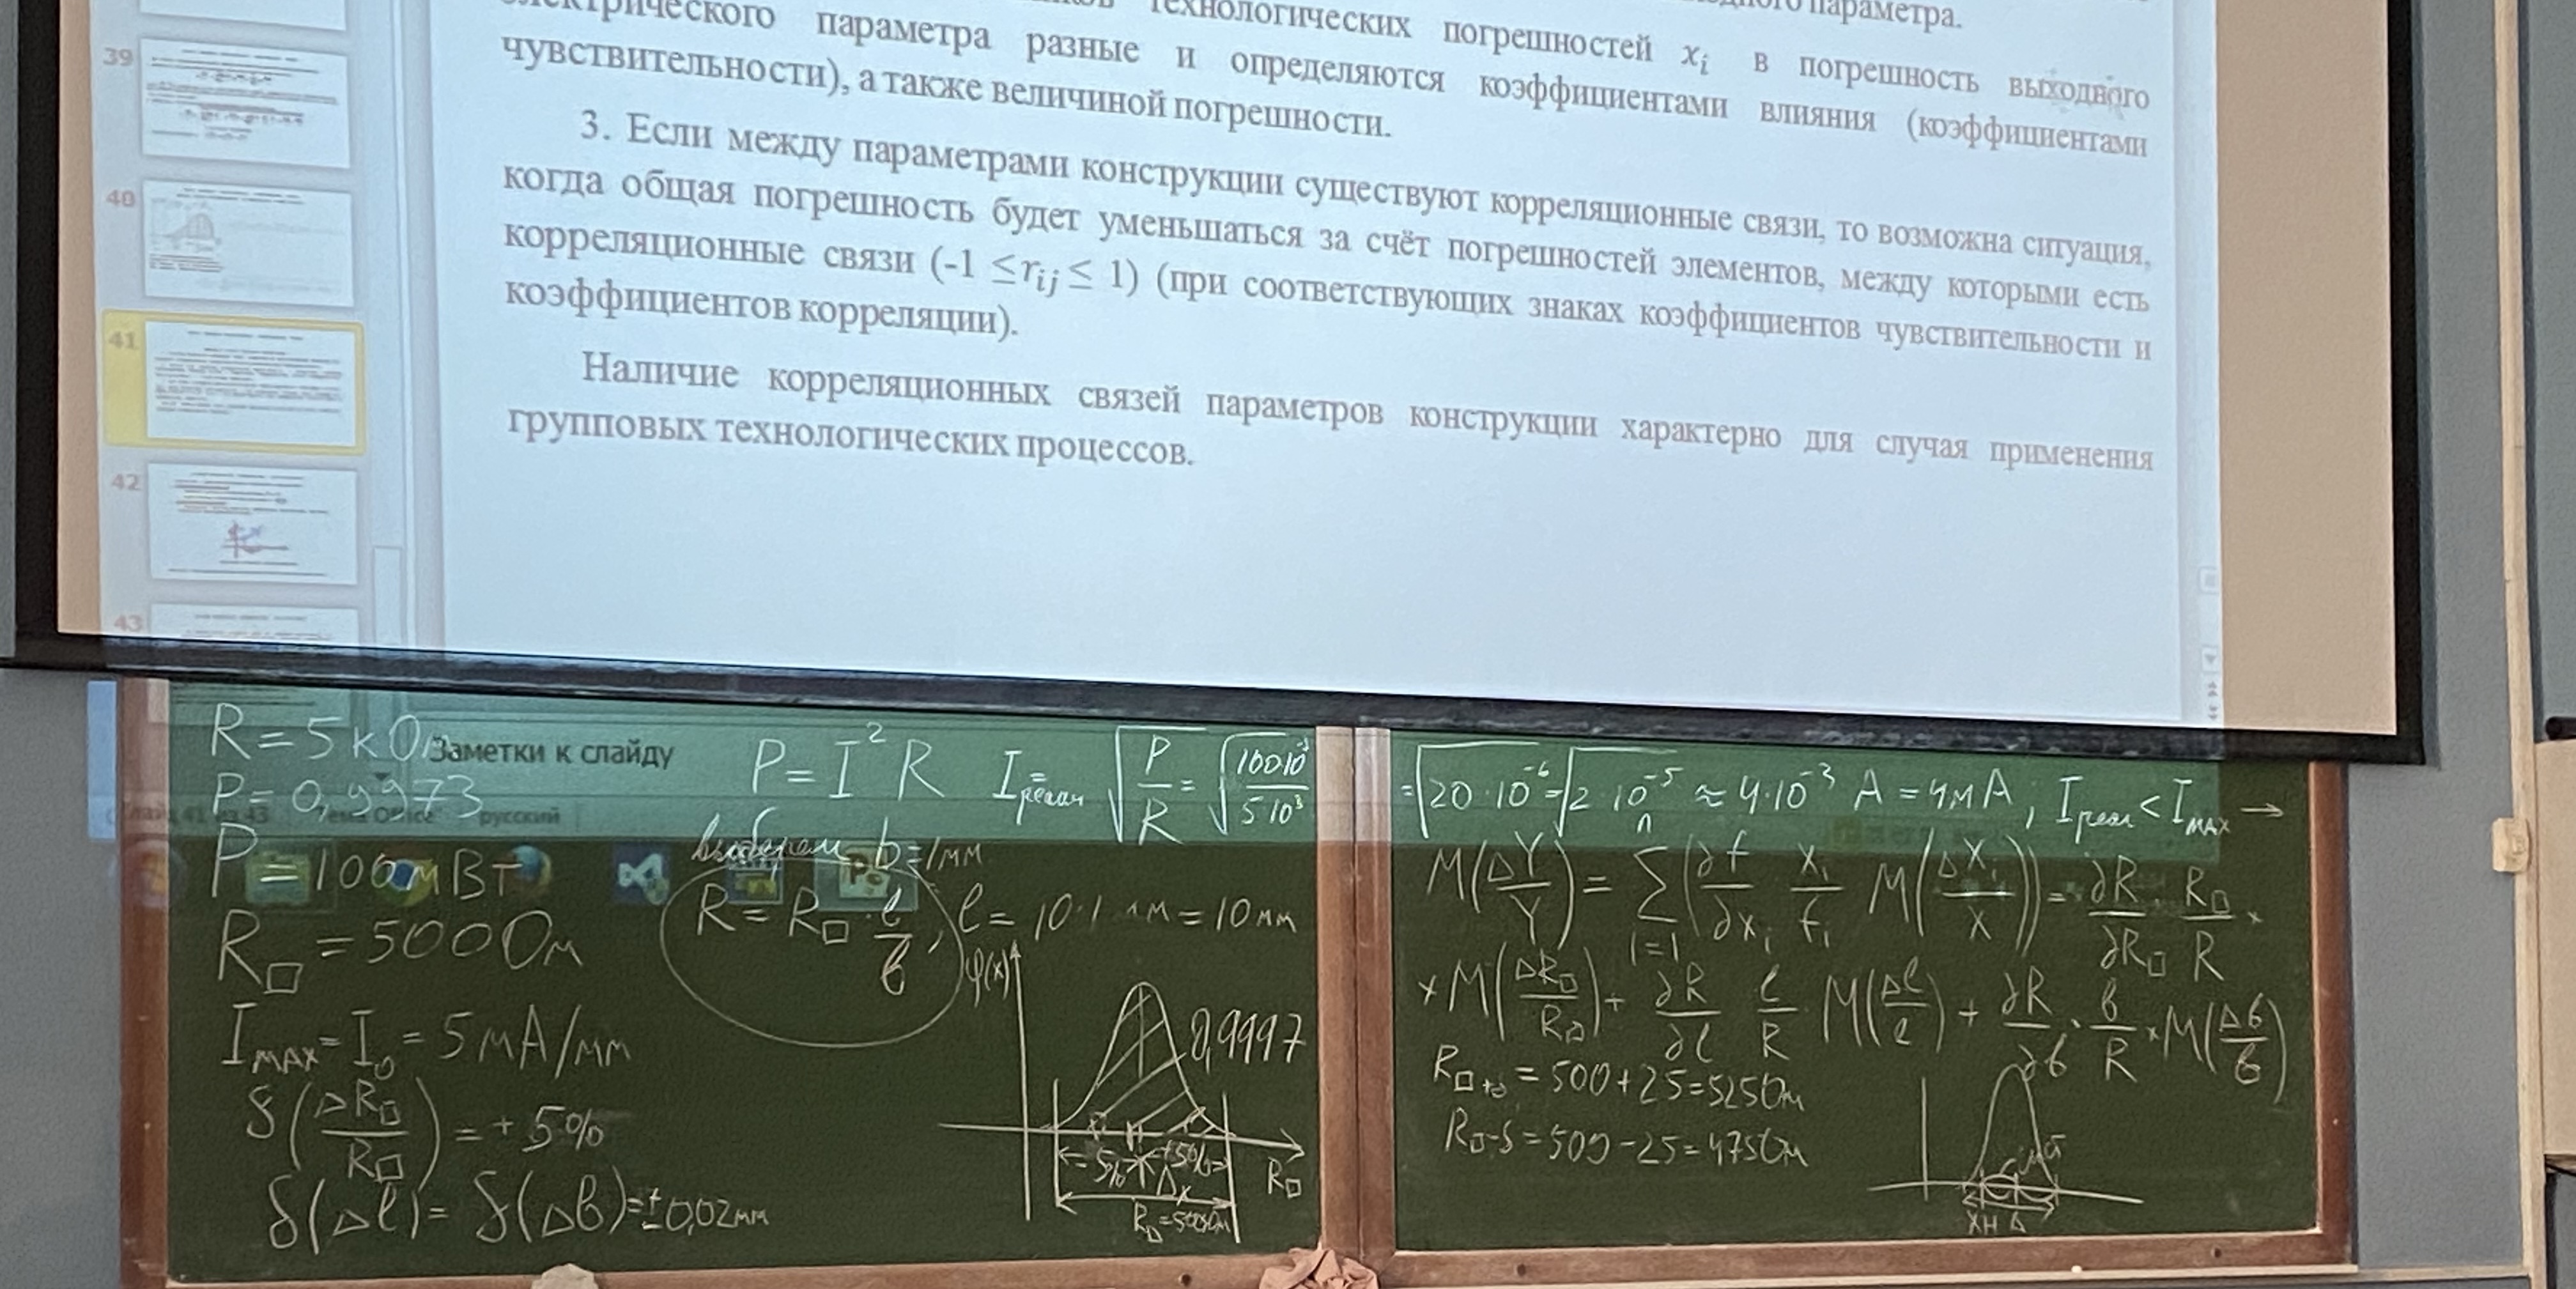 параметра.
технологических погрешностей xᵢ в погрешность выходного
электрического параметра разные и определяются коэффициентами влияния (коэффициентами
чувствительности), а также величиной погрешности.
3. Если между параметрами конструкции существуют корреляционные связи, то возможна ситуация,
когда общая погрешность будет уменьшаться за счёт погрешностей элементов, между которыми есть
корреляционные связи (-1 ≤ rᵢⱼ ≤ 1) (при соответствующих знаках коэффициентов чувствительности и
коэффициентов корреляции).
Наличие корреляционных связей параметров конструкции характерно для случая применения
групповых технологических процессов.
39
40
41
42
43
Заметки к слайду
русский
R = 5 к О
P = 0,9973
P = 100 мВт
R□ = 500 Ом
I MAX = I₀ = 5 мА/мм
δ(ΔR□/R□) = + 5%
δ(Δl) = δ(Δb) = ± 0,02 мм
P = I² R
I = √(P/R) = √(100·10⁻³/5·10³)
выберем b = 1 мм
R = R□ · l/b, l = 10·1 мм = 10 мм
φ(x)
0,9997
-5% +5%
Δx
R□
R□ = 500 Ом
= √(20·10⁻⁶) = √(2·10⁻⁵) ≈ 4·10⁻³ А = 4 мА; I реал < I MAX →
M(ΔY/Y) = Σ (i=1, n) (∂f/∂xᵢ · xᵢ/fᵢ · M(ΔXᵢ/X)) = ∂R/∂R□ · R□/R ×
× M(ΔR□/R□) + ∂R/∂l · l/R · M(Δl/l) + ∂R/∂b · b/R × M(Δb/b)
= 500 + 25 = 525 Ом
R□-5 = 500 - 25 = 475 Ом